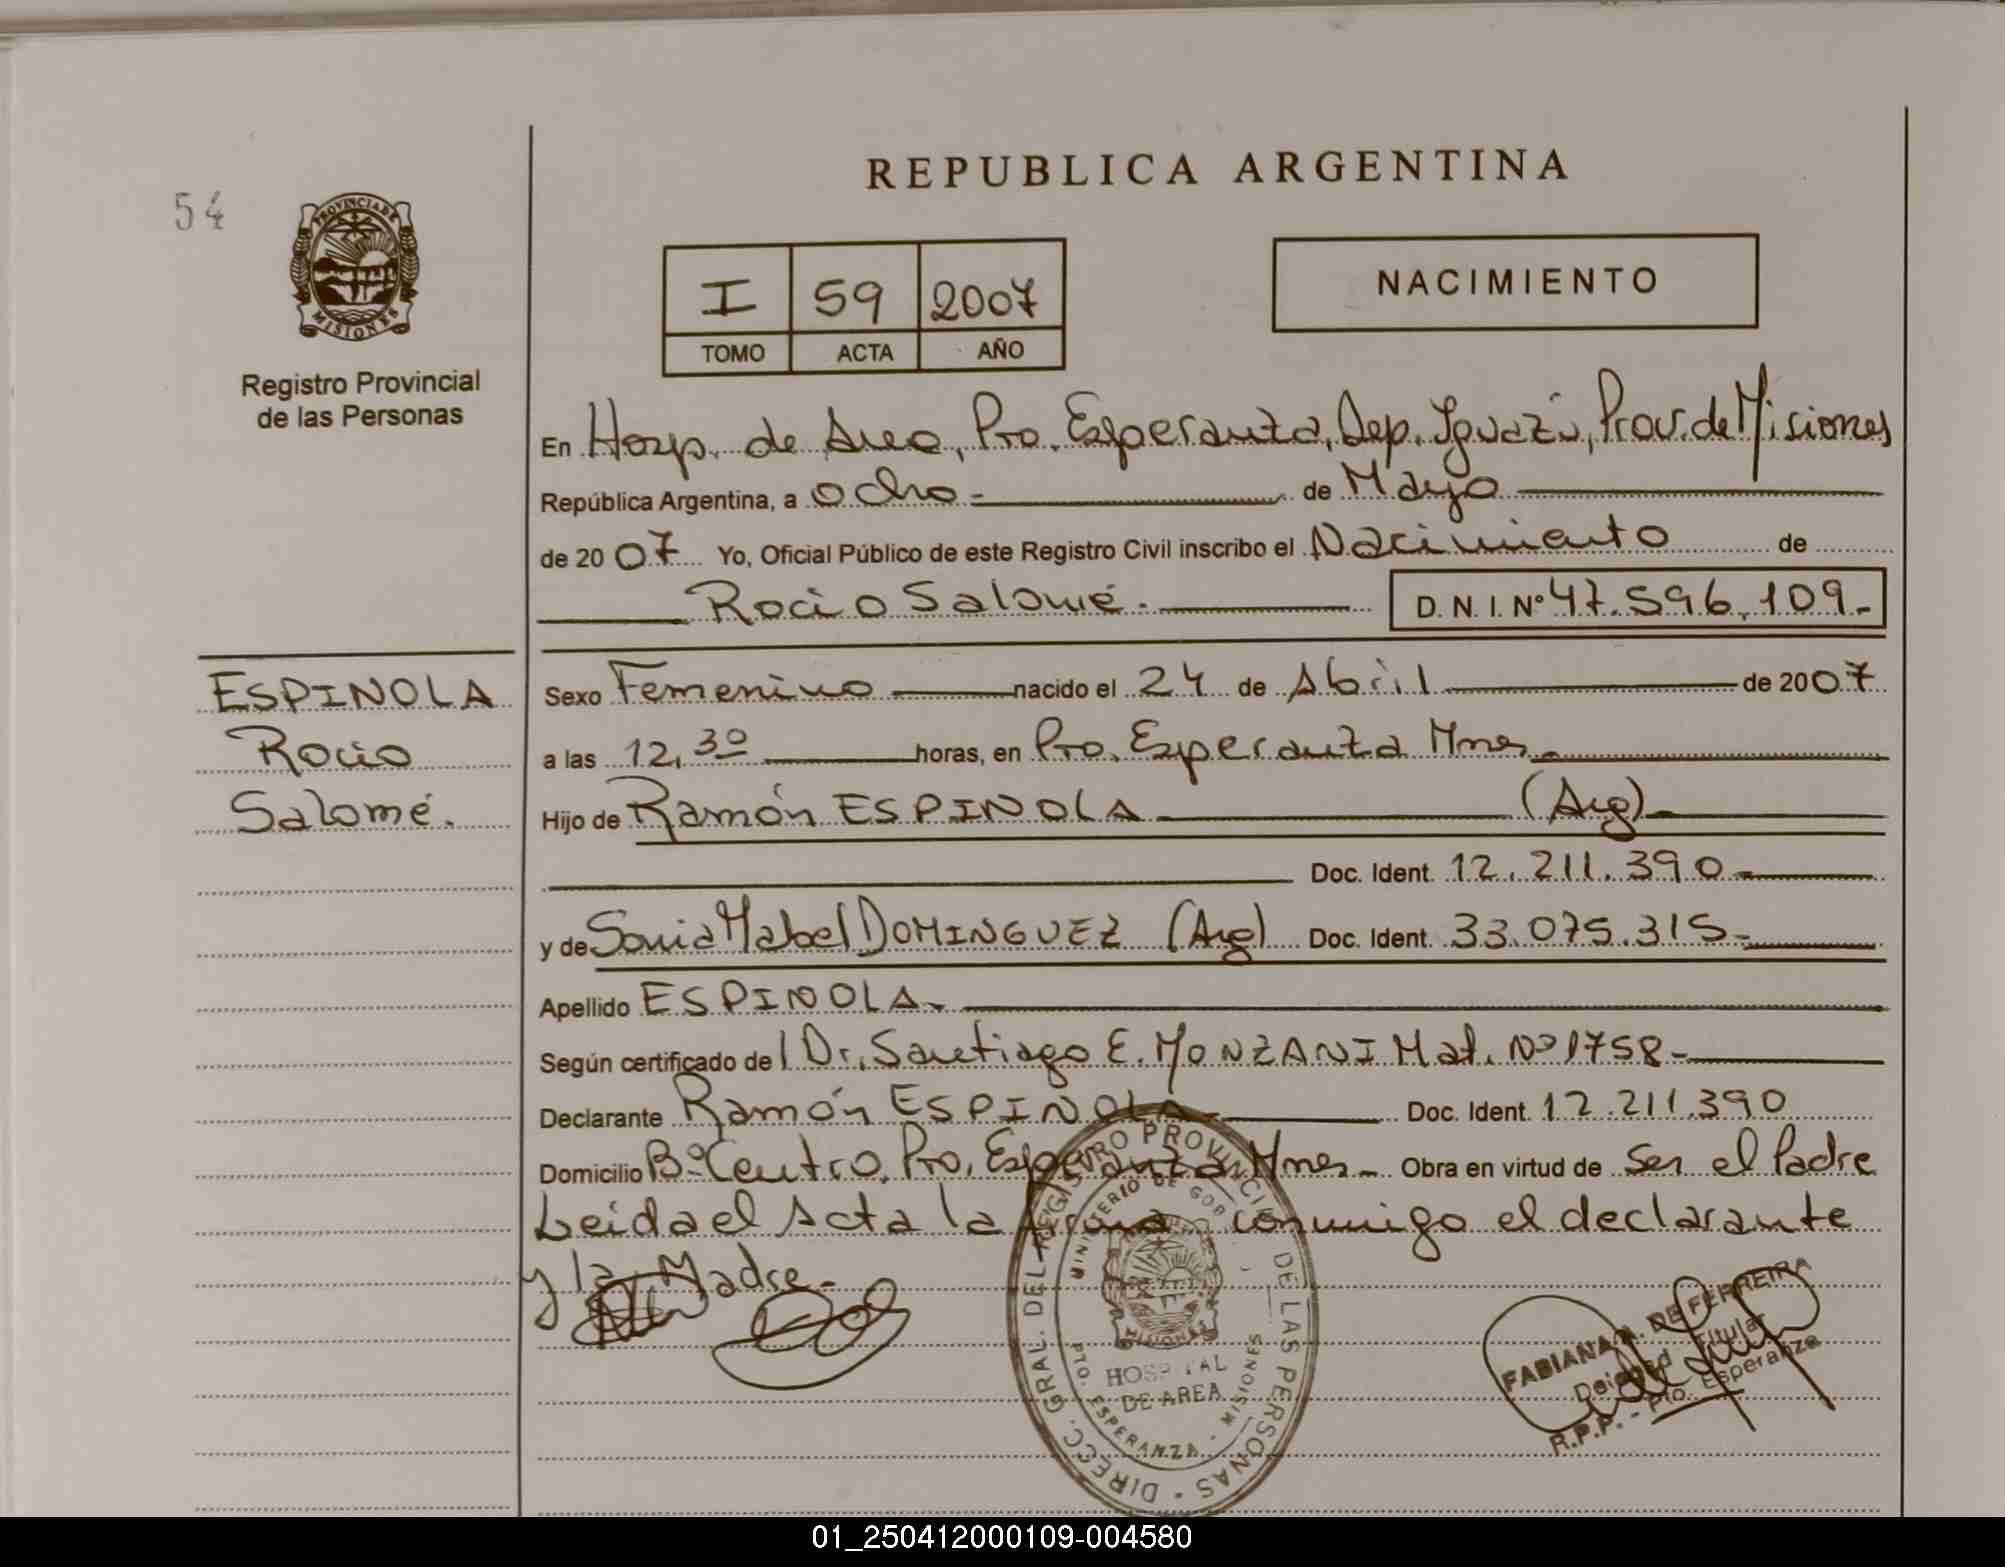 REPUBLICA ARGENTINA
54
PROVINCIA DE
MISIONES
Registro Provincial
de las Personas
I 59 2007
TOMO ACTA AÑO
NACIMIENTO
En Hosp. de Area, Pto. Esperanza, Dep. Iguazú, Prov. de Misiones
República Argentina, a ocho de Mayo
de 2007 Yo, Oficial Público de este Registro Civil inscribo el Nacimiento de
Rocio Salomé. D.N.I. Nº 47.596.109.-
ESPINOLA
Rocio
Salomé.
Sexo Femenino nacido el 24 de Abril de 2007
a las 12,30 horas, en Pto. Esperanza Mnes.
Hijo de Ramón ESPINOLA (Arg)
Doc. Ident. 12.211.390
y de Sonia Mabel DOMINGUEZ (Arg) Doc. Ident. 33.075.315
Apellido ESPINOLA.
Según certificado de l Dr. Santiago E. MONZANI Mat. Nº 1758
Declarante Ramón ESPINOLA Doc. Ident. 12.211.390
Domicilio Bº Centro. Pto. Esperanza Mnes Obra en virtud de Ser el Padre
Leida el Acta la firma conmigo el declarante
y la Madre
DIRECC. GRAL. DEL REGISTRO PROVINCIAL DE LAS PERSONAS
MINISTERIO DE GOB
MISIONES
HOSPITAL
DE AREA
PTO. ESPERANZA - MISIONES
FABIANA A. DE FERREIRA
Titular
R.P.P. - Pto. Esperanza
01_250412000109-004580